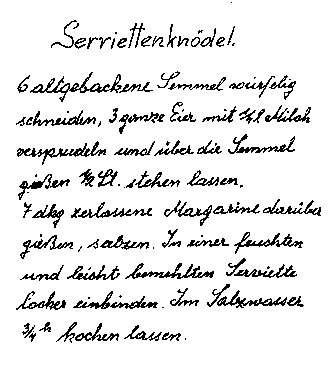 Serviettenknödel.
6 altgebackene Semmel würfelig
schneiden, 3 ganze Eier mit ¼ l Milch
versprudeln und über die Semmel
gießen ½ St. stehen lassen.
7 dkg zerlassene Margarine darüber
gießen, salzen. In einer feuchten
und leicht bemehlten Serviette
locker einbinden. Im Salzwasser
¾ h kochen lassen.